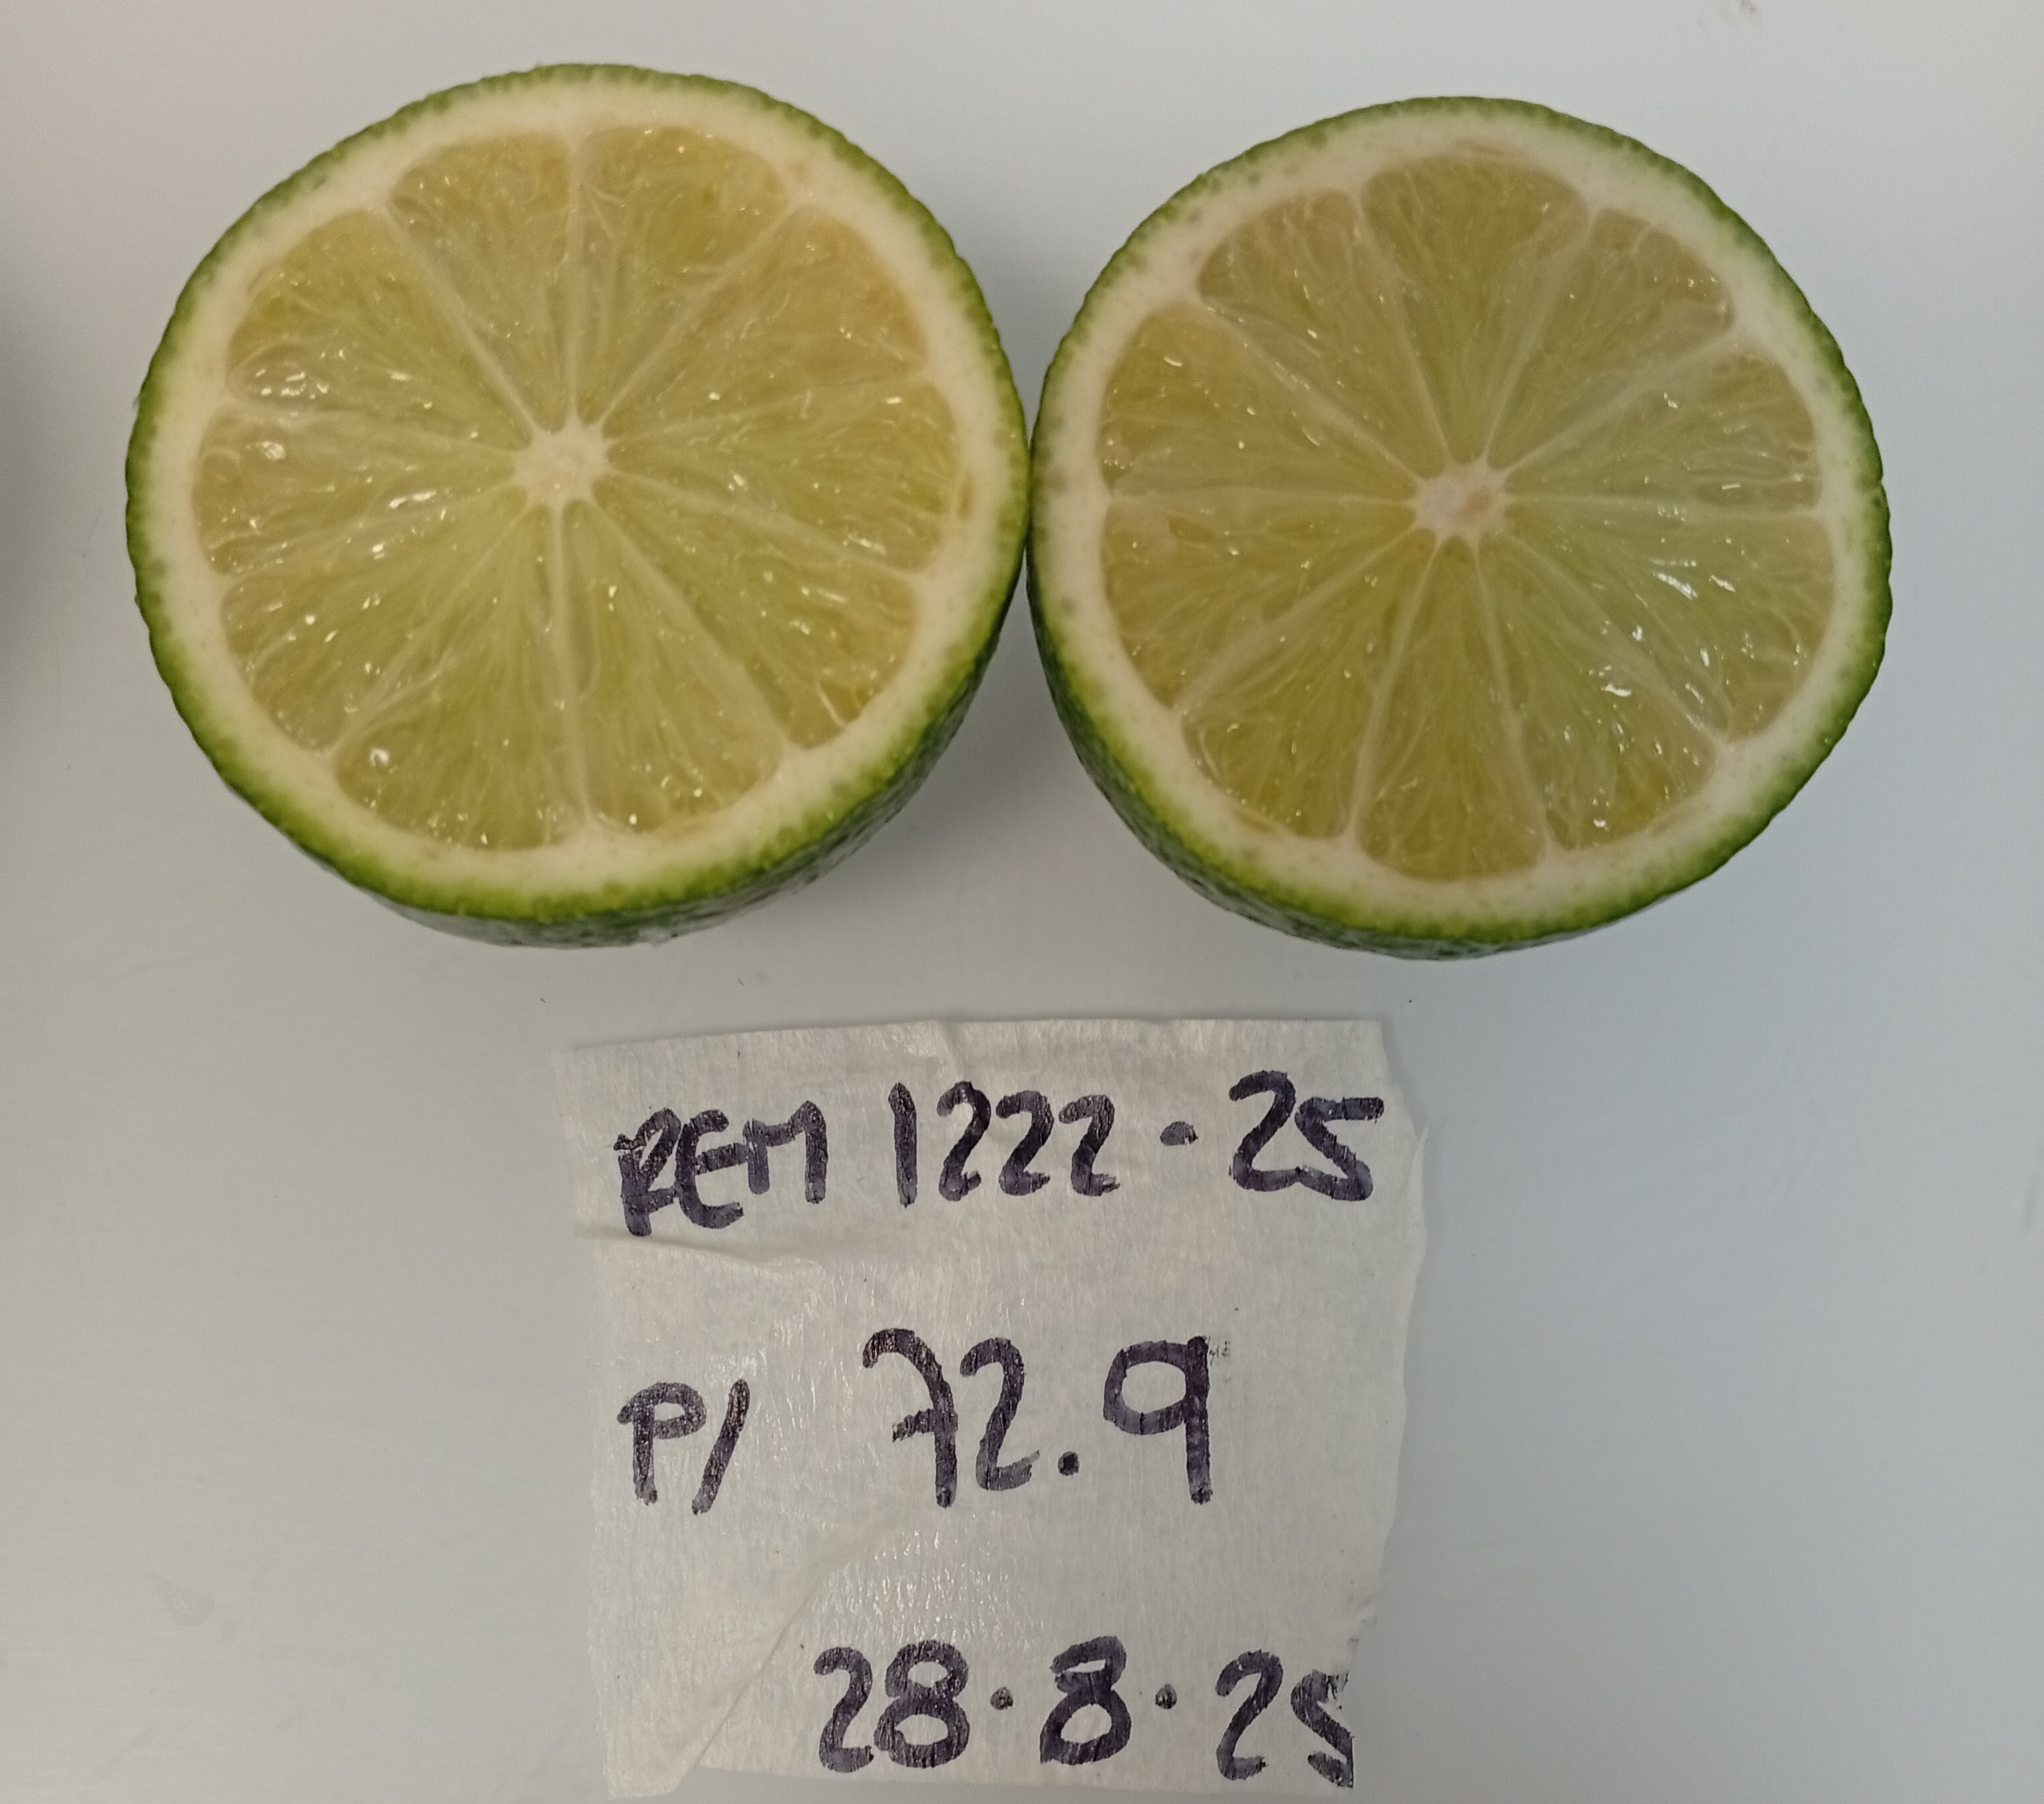 REM 1222-25
P/ 72.9
28.8.25